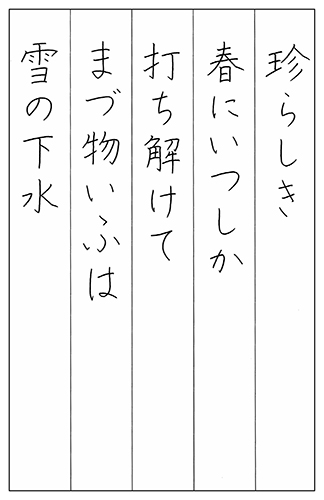 珍らしき
春にいつしか
打ち解けて
まづ物いふは
雪の下水